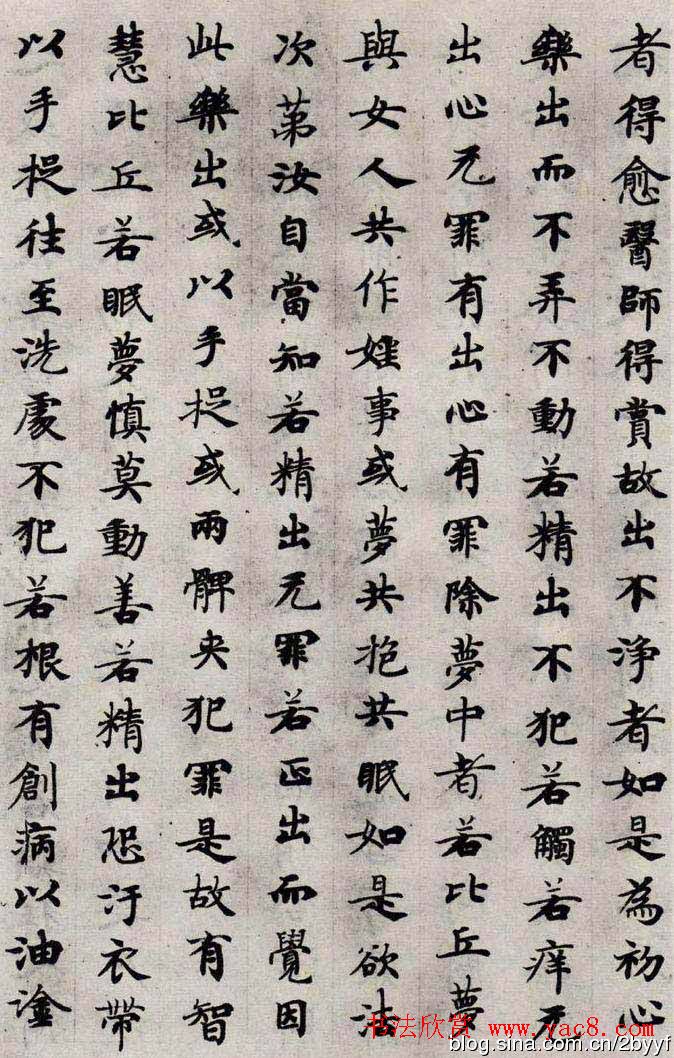 者得愈醫師得賞故出不淨者如是為初心
樂出而不弄不動若精出不犯若觸若痒无
出心无罪有出心有罪除夢中者若比丘夢
與女人共作婬事或夢共抱共眠如是欲法
次苐汝自當知若精出无罪若正出而覺因
此樂出或以手捉或兩髀夾犯罪是故有智
慧比丘若眠夢慎莫動善若精出恐汙衣帶
以手捉往至洗處不犯若根有創病以油塗
书法欣赏 www.yac8.com
blog.sina.com.cn/2byyf